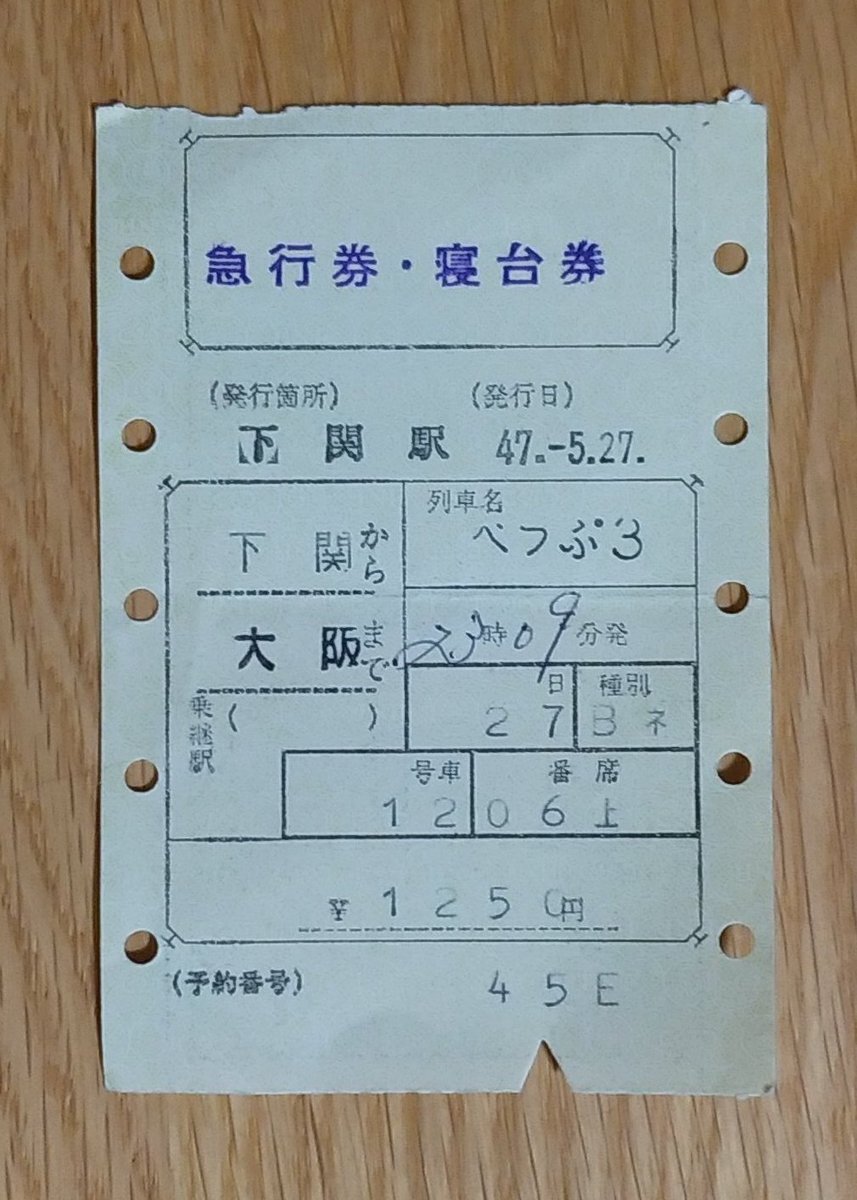 急行券・寝台券
(発行箇所) (発行日)
下関駅 47.-5.27.
下関から
列車名
べっぷ3
大阪まで
23時09分発
乗継駅( )
日 種別
27 Bネ
号車 番席
12 06上
¥1250円
(予約番号) 45E